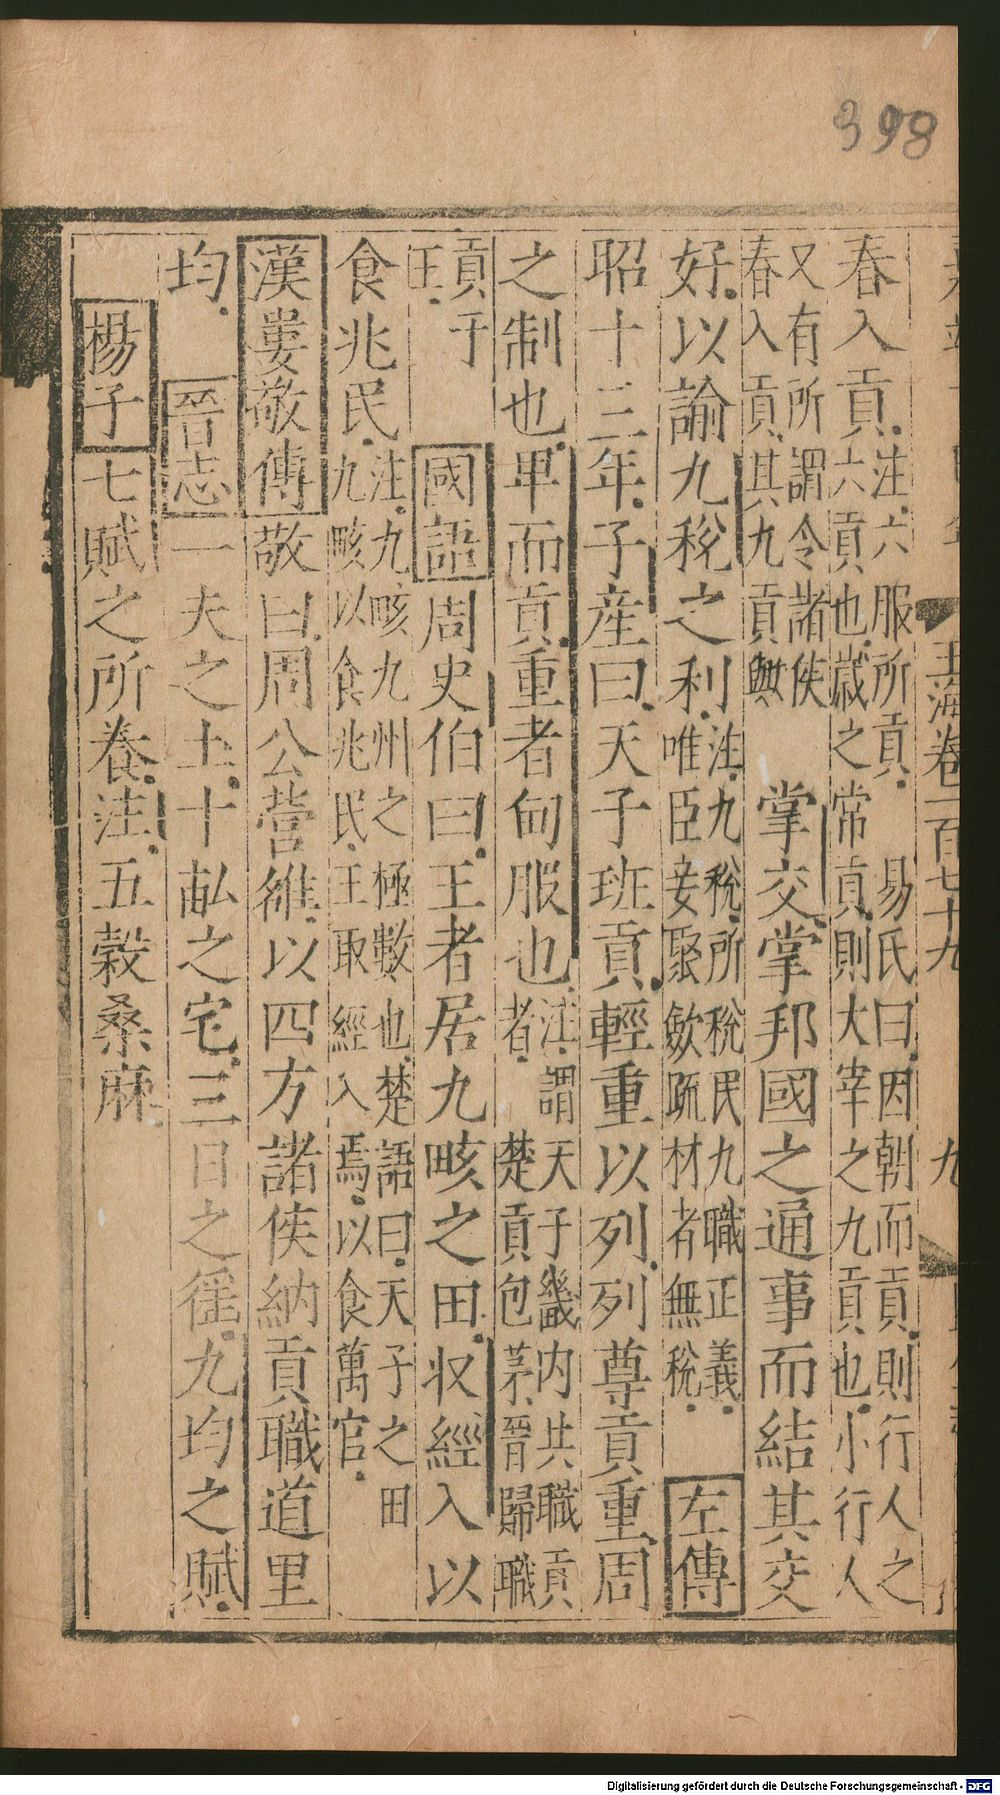 398
玉海卷一百七十九
九
春入貢。注。六服所貢。易氏曰。因朝而貢。則行人之
六貢也。歲之常貢。則大宰之九貢也。小行人
又有所謂令諸侯
春入貢。其九貢歟掌交。掌邦國之通事而結其交
好。以諭九稅之利。注。九稅。所稅民九職正義。
唯臣妾聚斂疏材者無稅。左傳
昭十三年。子産曰。天子班貢。輕重以列。列尊貢重。周
之制也。卑而貢重者甸服也。注。謂天子畿内共職貢
者。楚貢包茅。晉歸職
貢于
王。國語周史伯曰。王者居九畡之田。收經入以
食兆民。注。九畡九州之極數也。楚語曰。天子之田
九畡以食兆民。王取經入焉。以食萬官。
漢婁敬傳敬曰。周公營雒。以四方諸侯納貢職道里
均。晉志一夫之土。十畝之宅。三日之徭。九均之賦。
楊子七賦之所養。注。五穀桑麻。
Digitalisierung gefördert durch die Deutsche Forschungsgemeinschaft - DFG